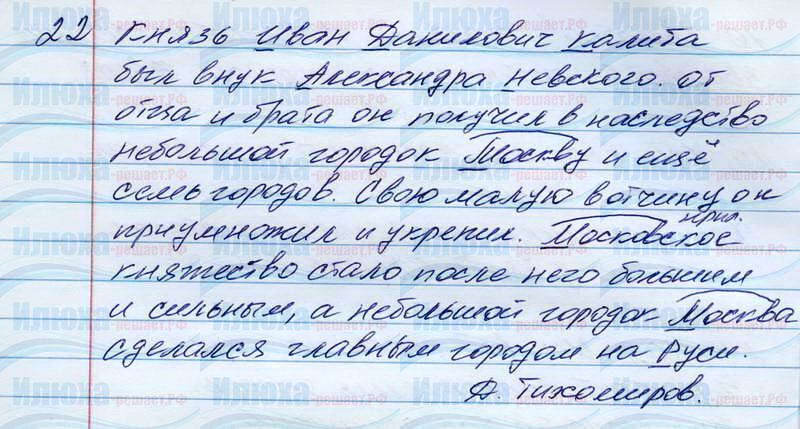 22 Князь Иван Данилович Калита
был внук Александра Невского. От
отца и брата он получил в наследство
небольшой городок Москву и ещё
семь городов. Свою малую вотчину он
прил.
приумножил и укрепил. Московское
княжество стало после него большим
и сильным, а небольшой городок Москва
сделался главным городом на Руси.
Д. Тихомиров.
Илюха-решает.РФ